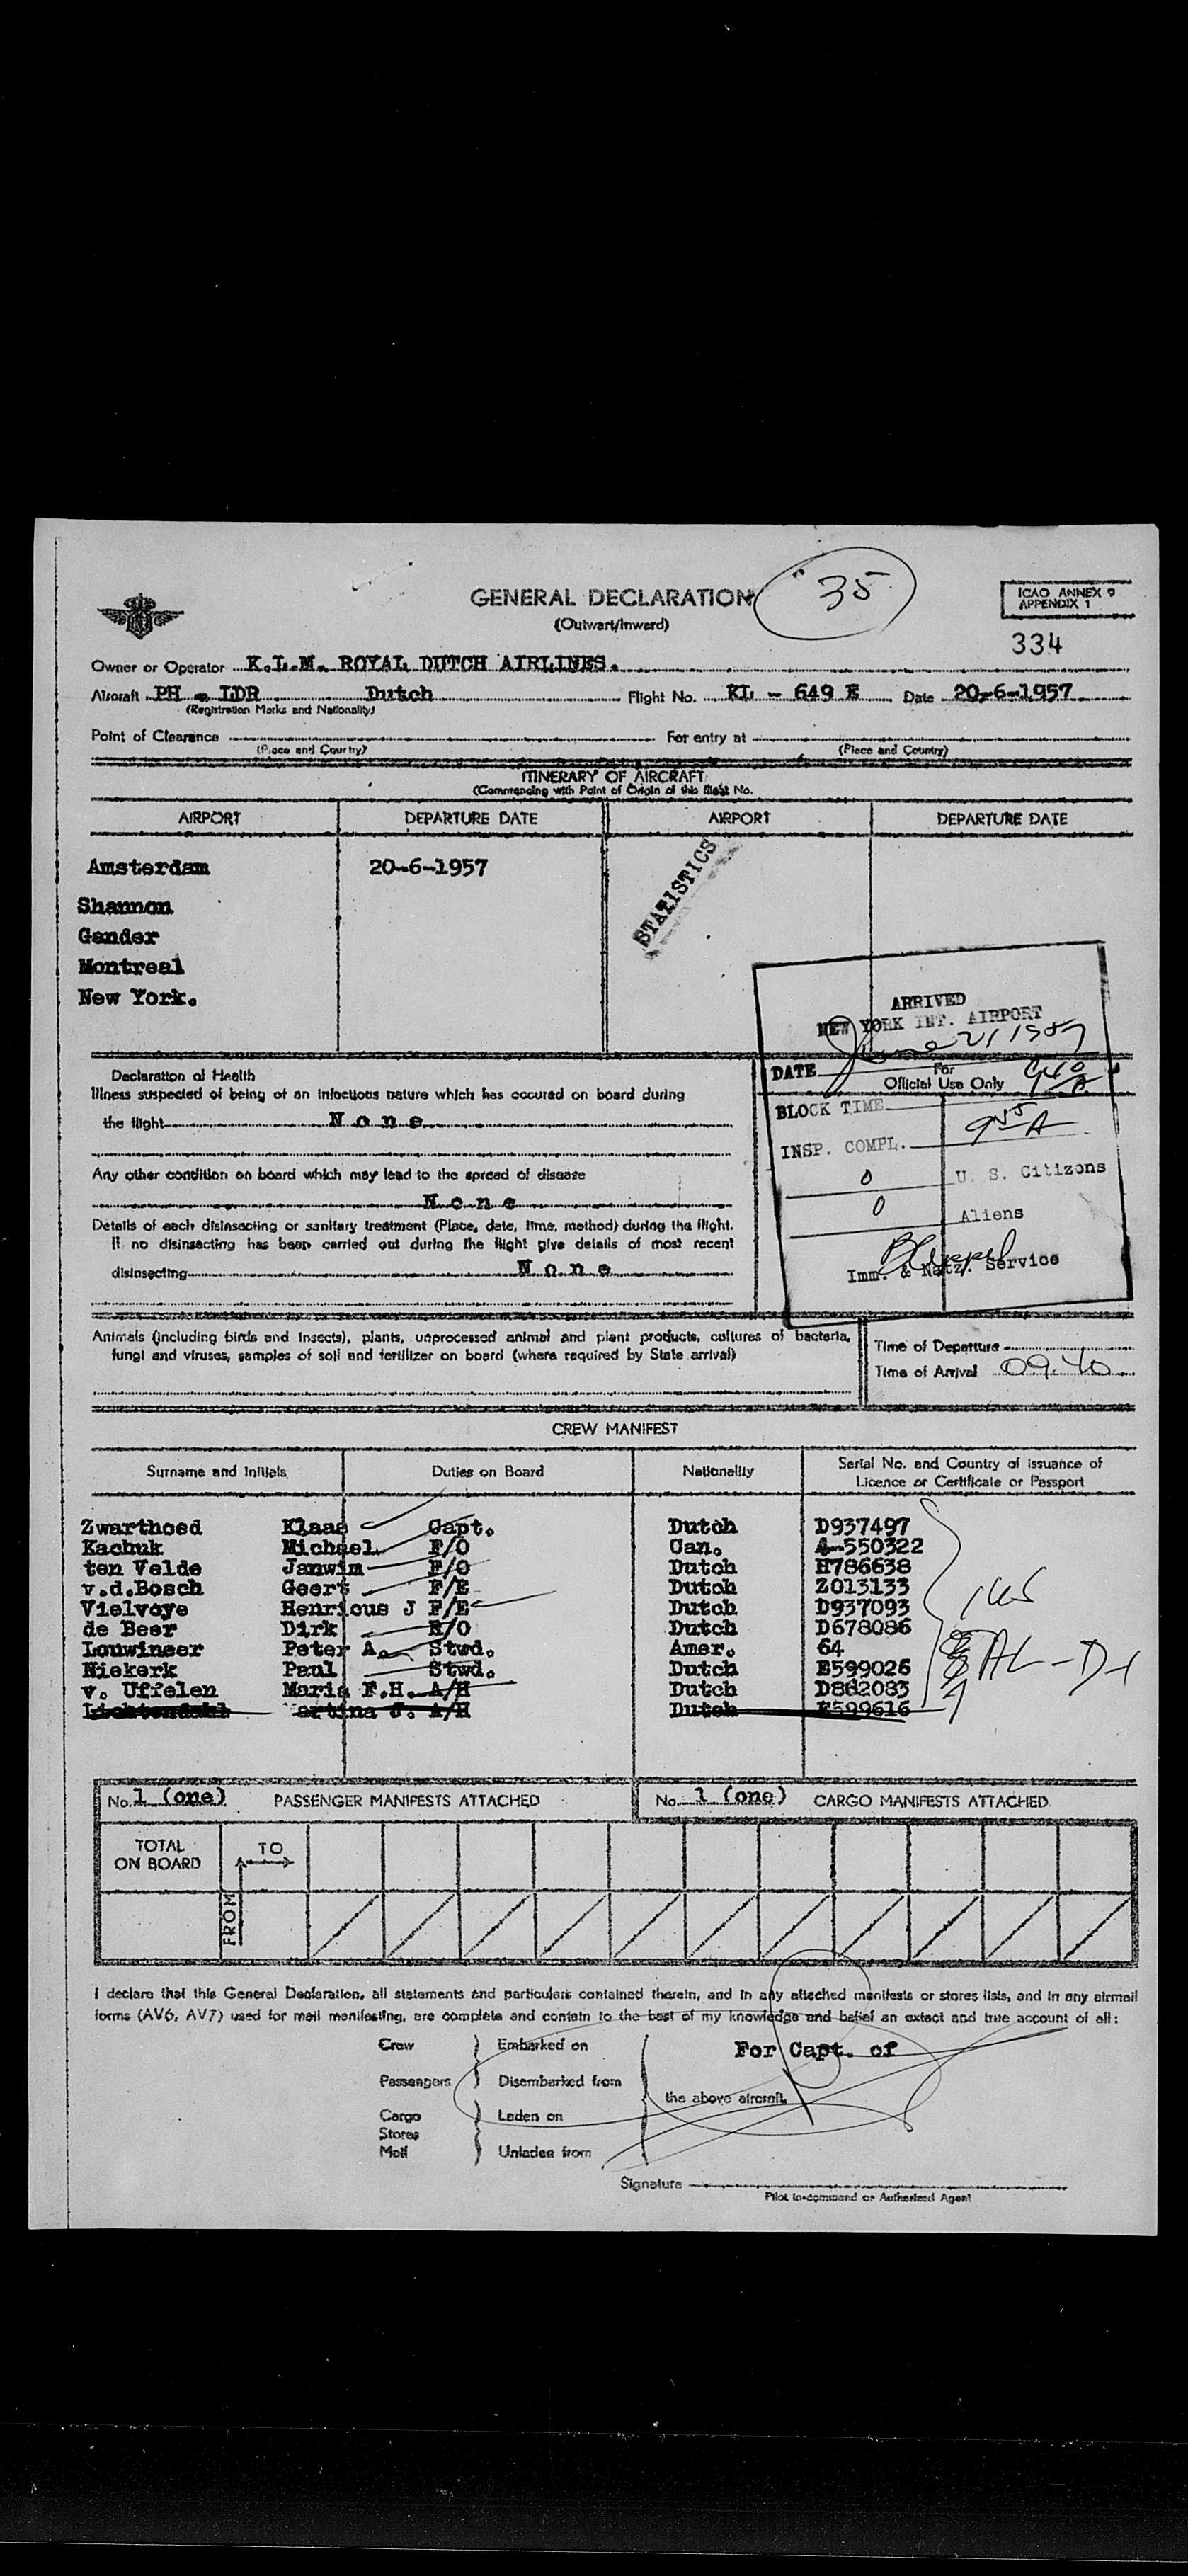 35
GENERAL DECLARATION
(Outwart/Inward)
ICAO ANNEX 9
APPENDIX 1
334
Owner or Operator K.L.M. ROYAL DUTCH AIRLINES.
Aircraft PH - LDR Dutch Flight No. KL - 649 E Date 20-6-1957
(Registration Marks and Nationality)
Point of Clearance For entry at
(Place and Country) (Place and Country)
ITINERARY OF AIRCRAFT
(Commencing with Point of Origin of this flight No.
AIRPORT DEPARTURE DATE AIRPORT DEPARTURE DATE
Amsterdam 20-6-1957
Shannon
Gander
Montreal
New York.
STATISTICS
ARRIVED
NEW YORK INT. AIRPORT
DATE June 21 1957
For
Official Use Only
940 A
BLOCK TIME
INSP. COMPL. 945 A
0 U. S. Citizens
0 Aliens
Imm. & Natz. Service
Declaration of Health
Illness suspected of being of an infectious nature which has occured on board during
the flight None
Any other condition on board which may lead to the spread of disease
None
Details of each disinsecting or sanitary treatment (Place, date, time, method) during the flight.
If no disinsecting has been carried out during the flight give details of most recent
disinsecting None
Animals (including birds and insects), plants, unprocessed animal and plant products, cultures of bacteria,
fungi and viruses, samples of soil and fertilizer on board (where required by State arrival)
Time of Departure
Time of Arrival 09.40
CREW MANIFEST
Surname and Initials Duties on Board Nationality Serial No. and Country of issuance of
Licence or Certificate or Passport
Zwarthoed Klaas Capt. Dutch D937497
Kachuk Michael F/O Can. 4-550322
ten Velde Janwim F/O Dutch H786638
v.d.Bosch Geert F/E Dutch Z013133
Vielvoye Henricus J F/E Dutch D937093
de Beer Dirk R/O Dutch D678086
Louwinser Peter A. Stwd. Amer. 64
Niekerk Paul Stwd. Dutch E599026
v. Uffelen Maria F.H. A/H Dutch D862083
Lichtendahl Martina J. A/H Dutch E599616
AL-D-1
No. 1 (one) PASSENGER MANIFESTS ATTACHED No. 1 (one) CARGO MANIFESTS ATTACHED
TOTAL
ON BOARD
TO
FROM
I declare that this General Declaration, all statements and particulars contained therein, and in any attached manifests or stores lists, and in any airmail
forms (AV6, AV7) used for mail manifesting, are complete and contain to the best of my knowledge and belief an extact and true account of all:
Crew Embarked on For Capt. of
Passengers Disembarked from
the above aircraft.
Cargo Laden on
Stores
Mail Unladen from
Signature
Pilot in-command or Authorized Agent